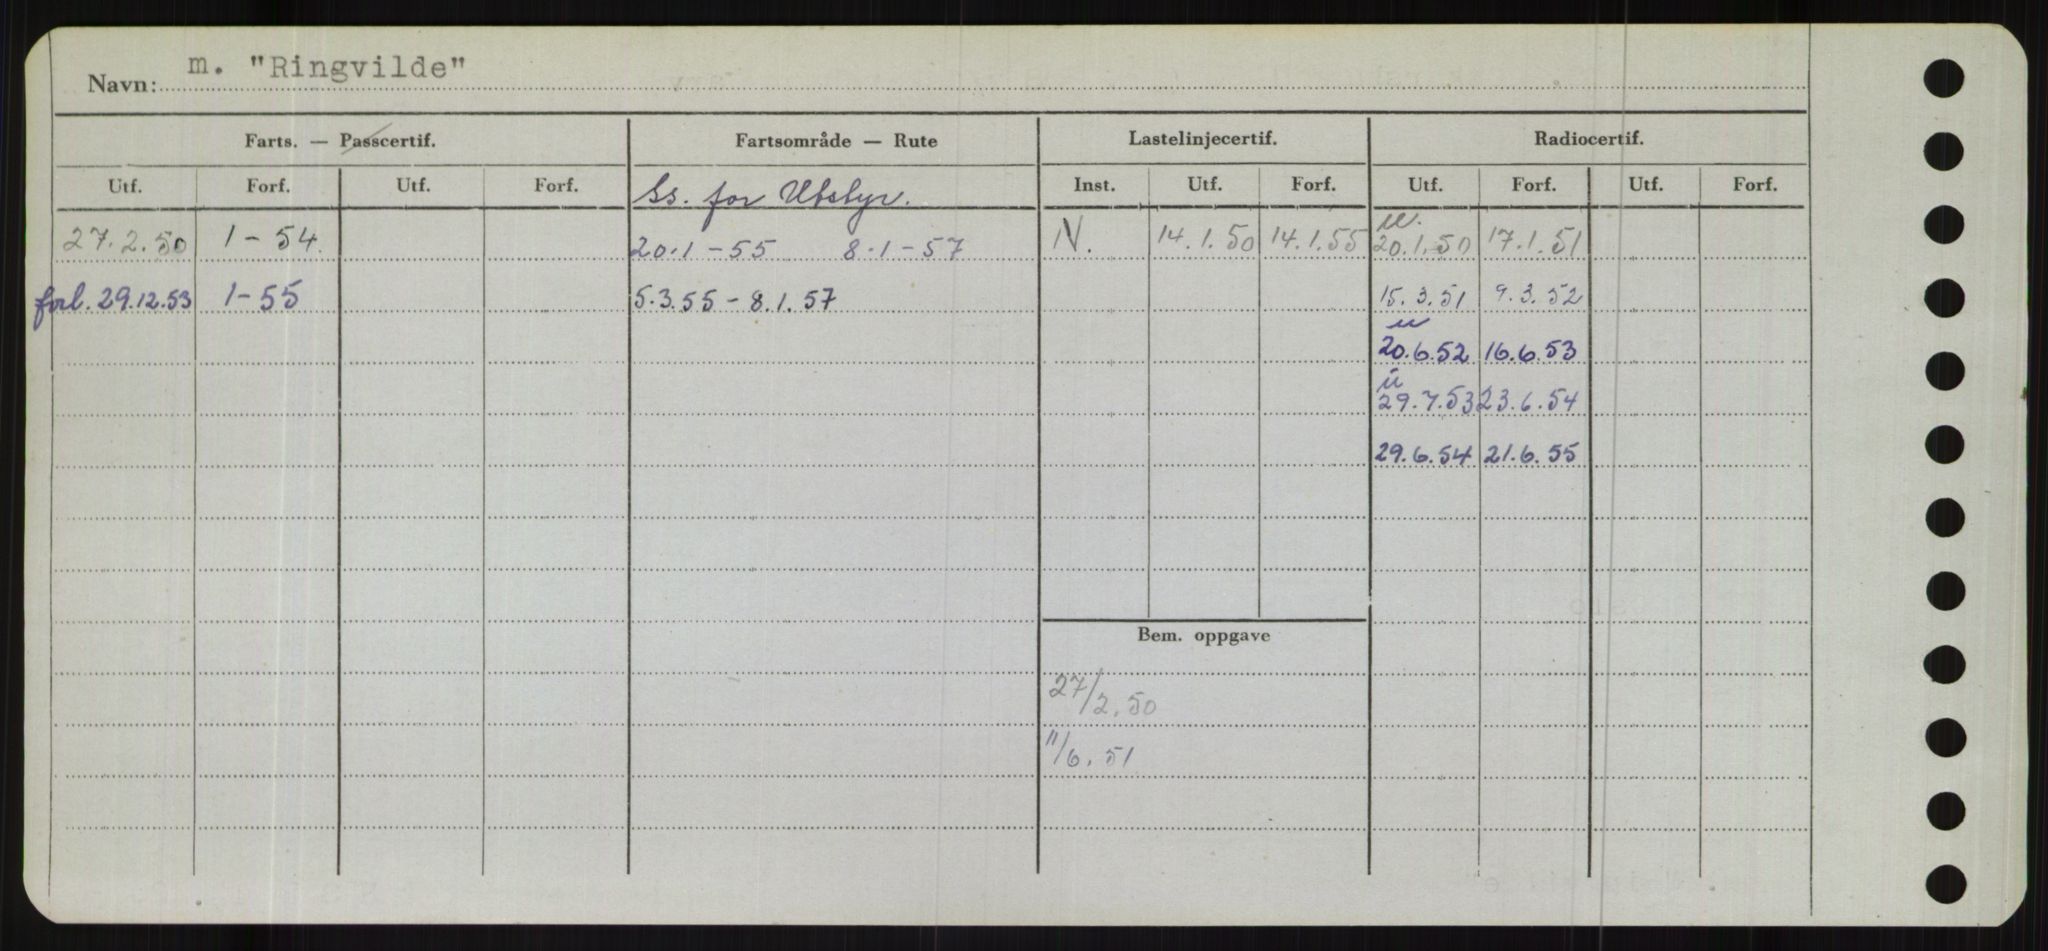 Navn: m. "Ringvilde"
Farts. — Passcertif. Fartsområde — Rute Lastelinjecertif. Radiocertif.
Utf. Forf. Utf. Forf. Ss. for Utstyr. Inst. Utf. Forf. Utf. Forf. Utf. Forf.
u.
27.2.50 1-54. 20.1-55 8.1-57 N. 14.1.50 14.1.55 20.1.50 17.1.51
forl. 29.12.53 1-55 5.3.55 - 8.1.57 15.3.51 9.3.52
u
20.6.52 16.6.53
u
29.7.53 23.6.54
29.6.54 21.6.55
Bem. oppgave
27/2.50
11/6.51